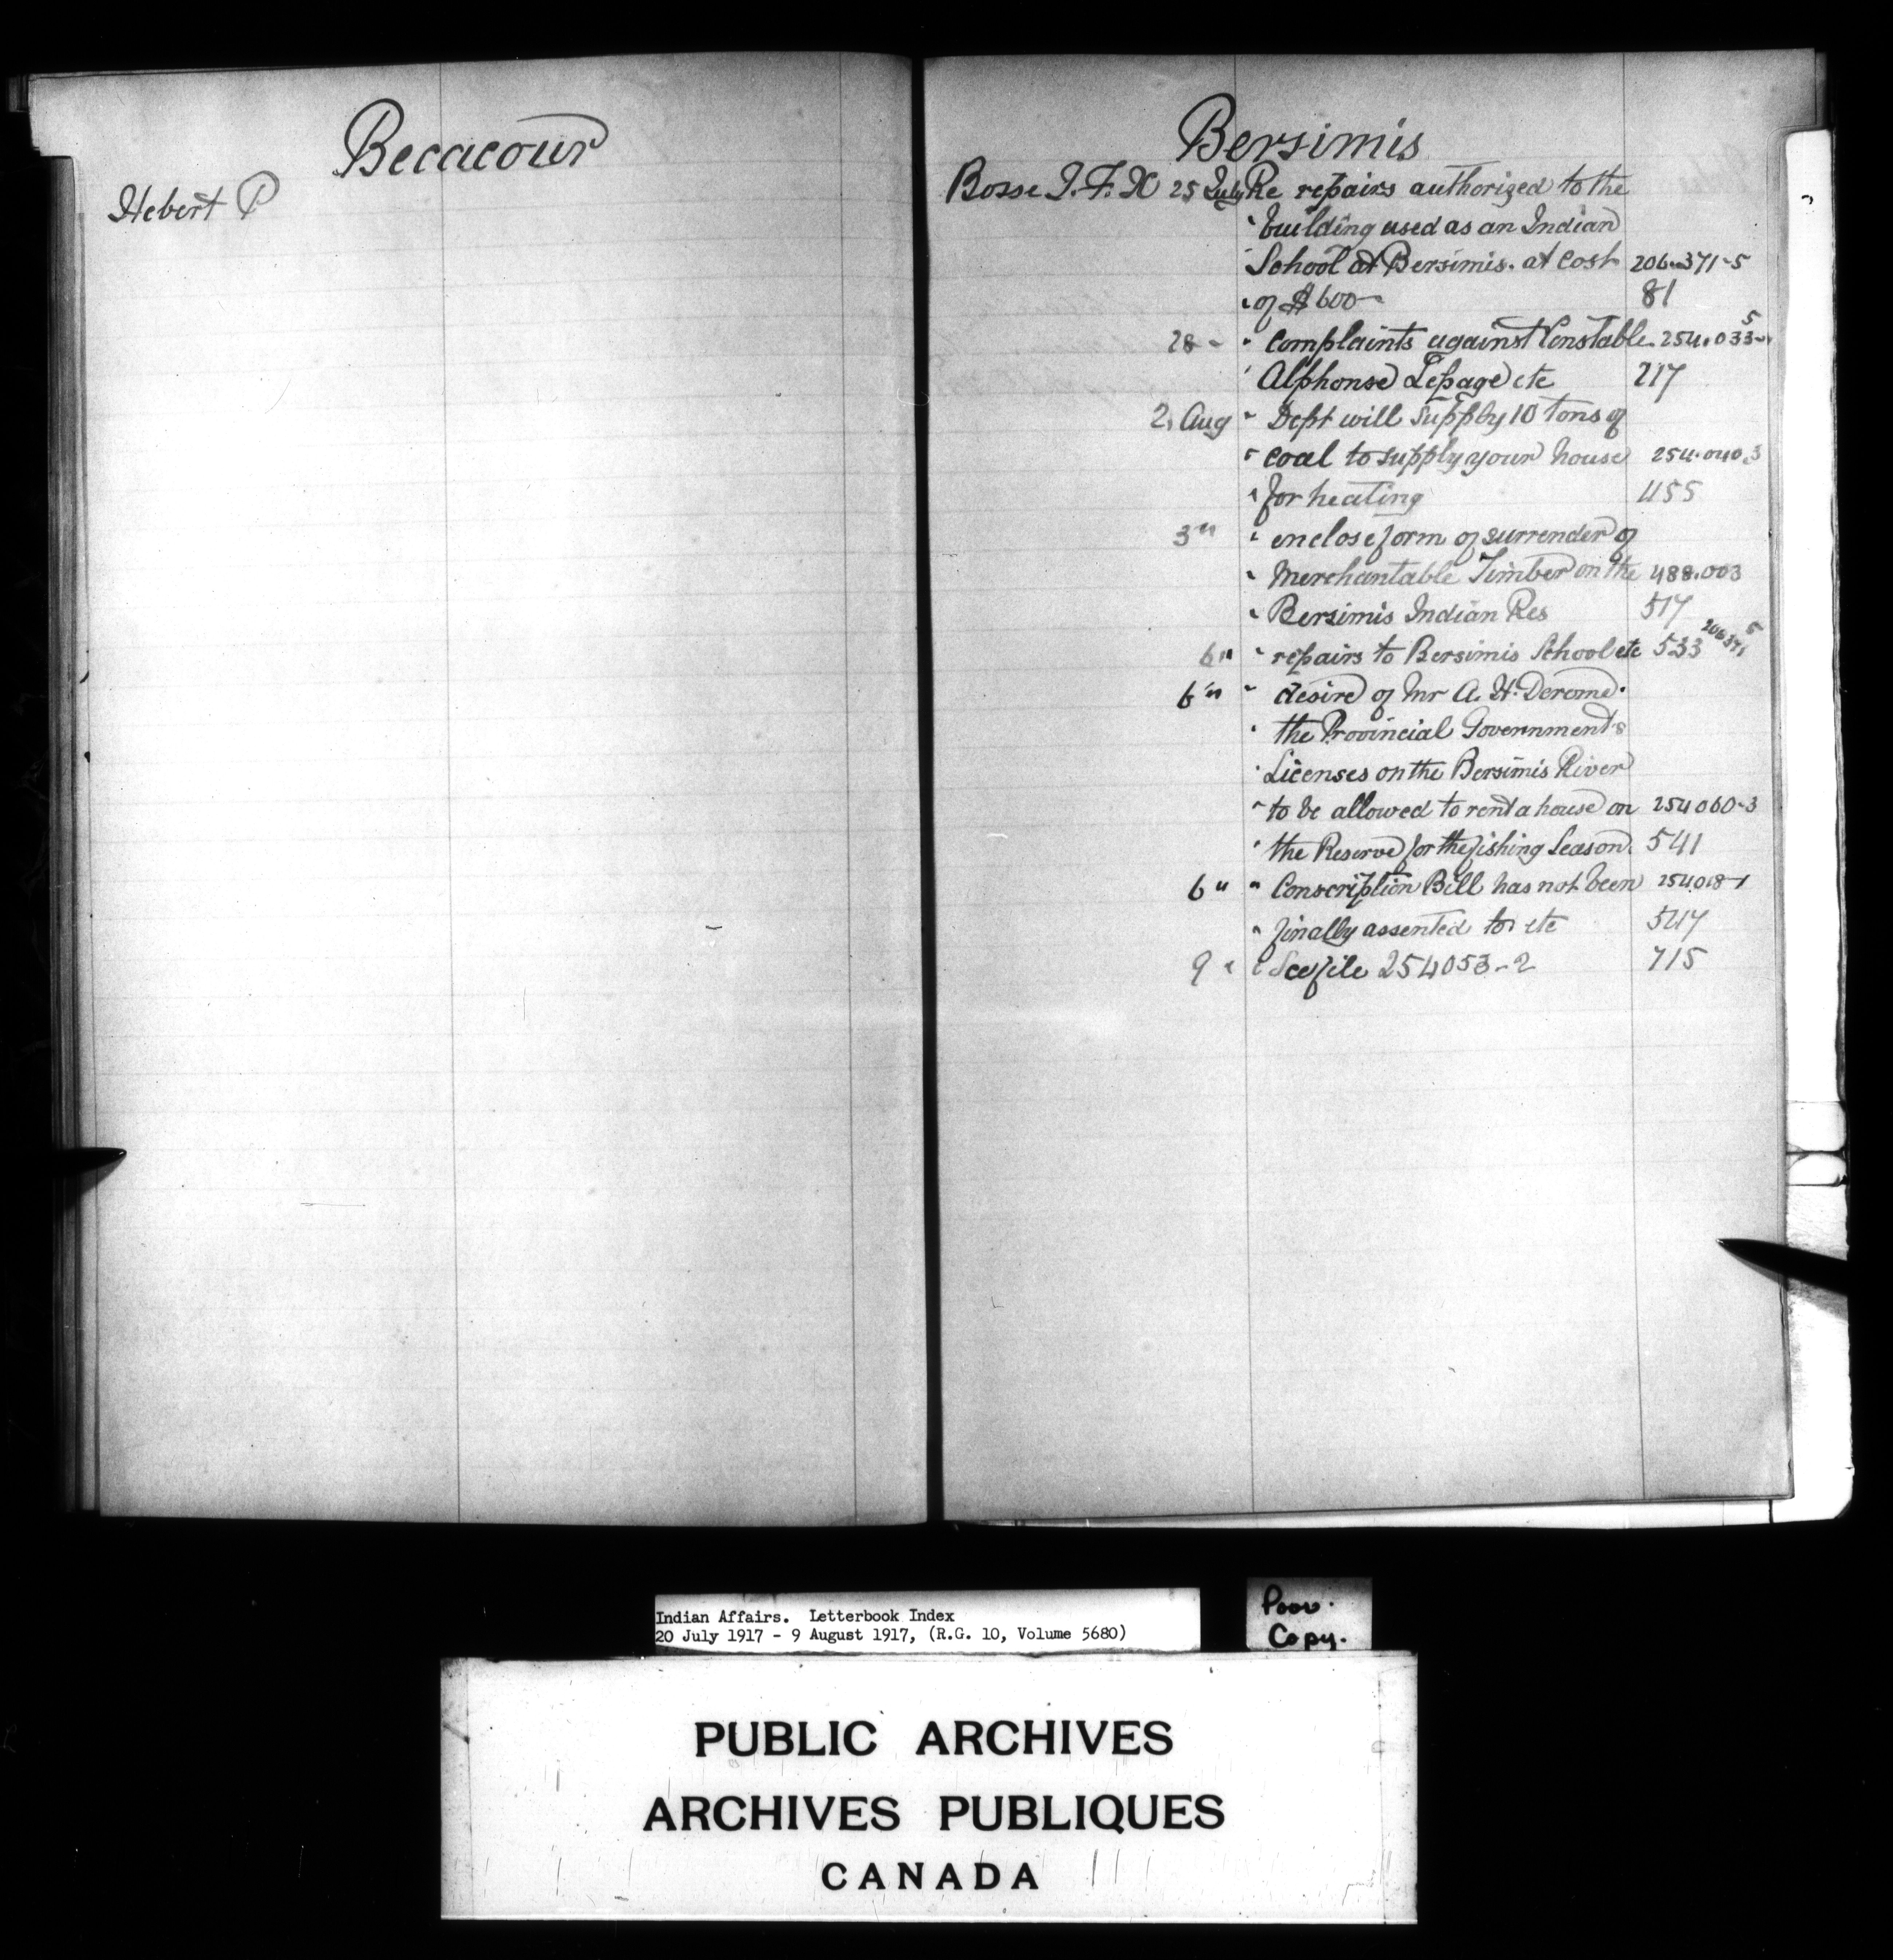 Becacour
Hebert P
Bersimis
Bosse J. F. X 25 July Re repairs authorized to the
" building used as an Indian
" School at Bersimis. at cost 206.371-5
" of $600 81
28 " " complaints against Constable 254.033-5
" Alphonse Lepage etc 217
2, Aug " Dept will supply 10 tons of
" coal to supply your house 254.040.3
" for heating 455
3 " " enclose form of surrender of
" Merchantable Timber on the 488.003
" Bersimis Indian Res 517
6 " " repairs to Bersimis School etc 533 206371 5
6 " " desire of Mr A. H. Derome.
" the Provincial Government's
" Licenses on the Bersimis River
" to be allowed to rent a house on 254060-3
" the Reserve for the fishing Season. 541
6 " " Conscription Bill has not been 254018-1
" finally assented to etc 547
9 " " See file 254053-2 715
Indian Affairs. Letterbook Index
20 July 1917 - 9 August 1917, (R.G. 10, Volume 5680)
Poor.
Copy.
PUBLIC ARCHIVES
ARCHIVES PUBLIQUES
CANADA